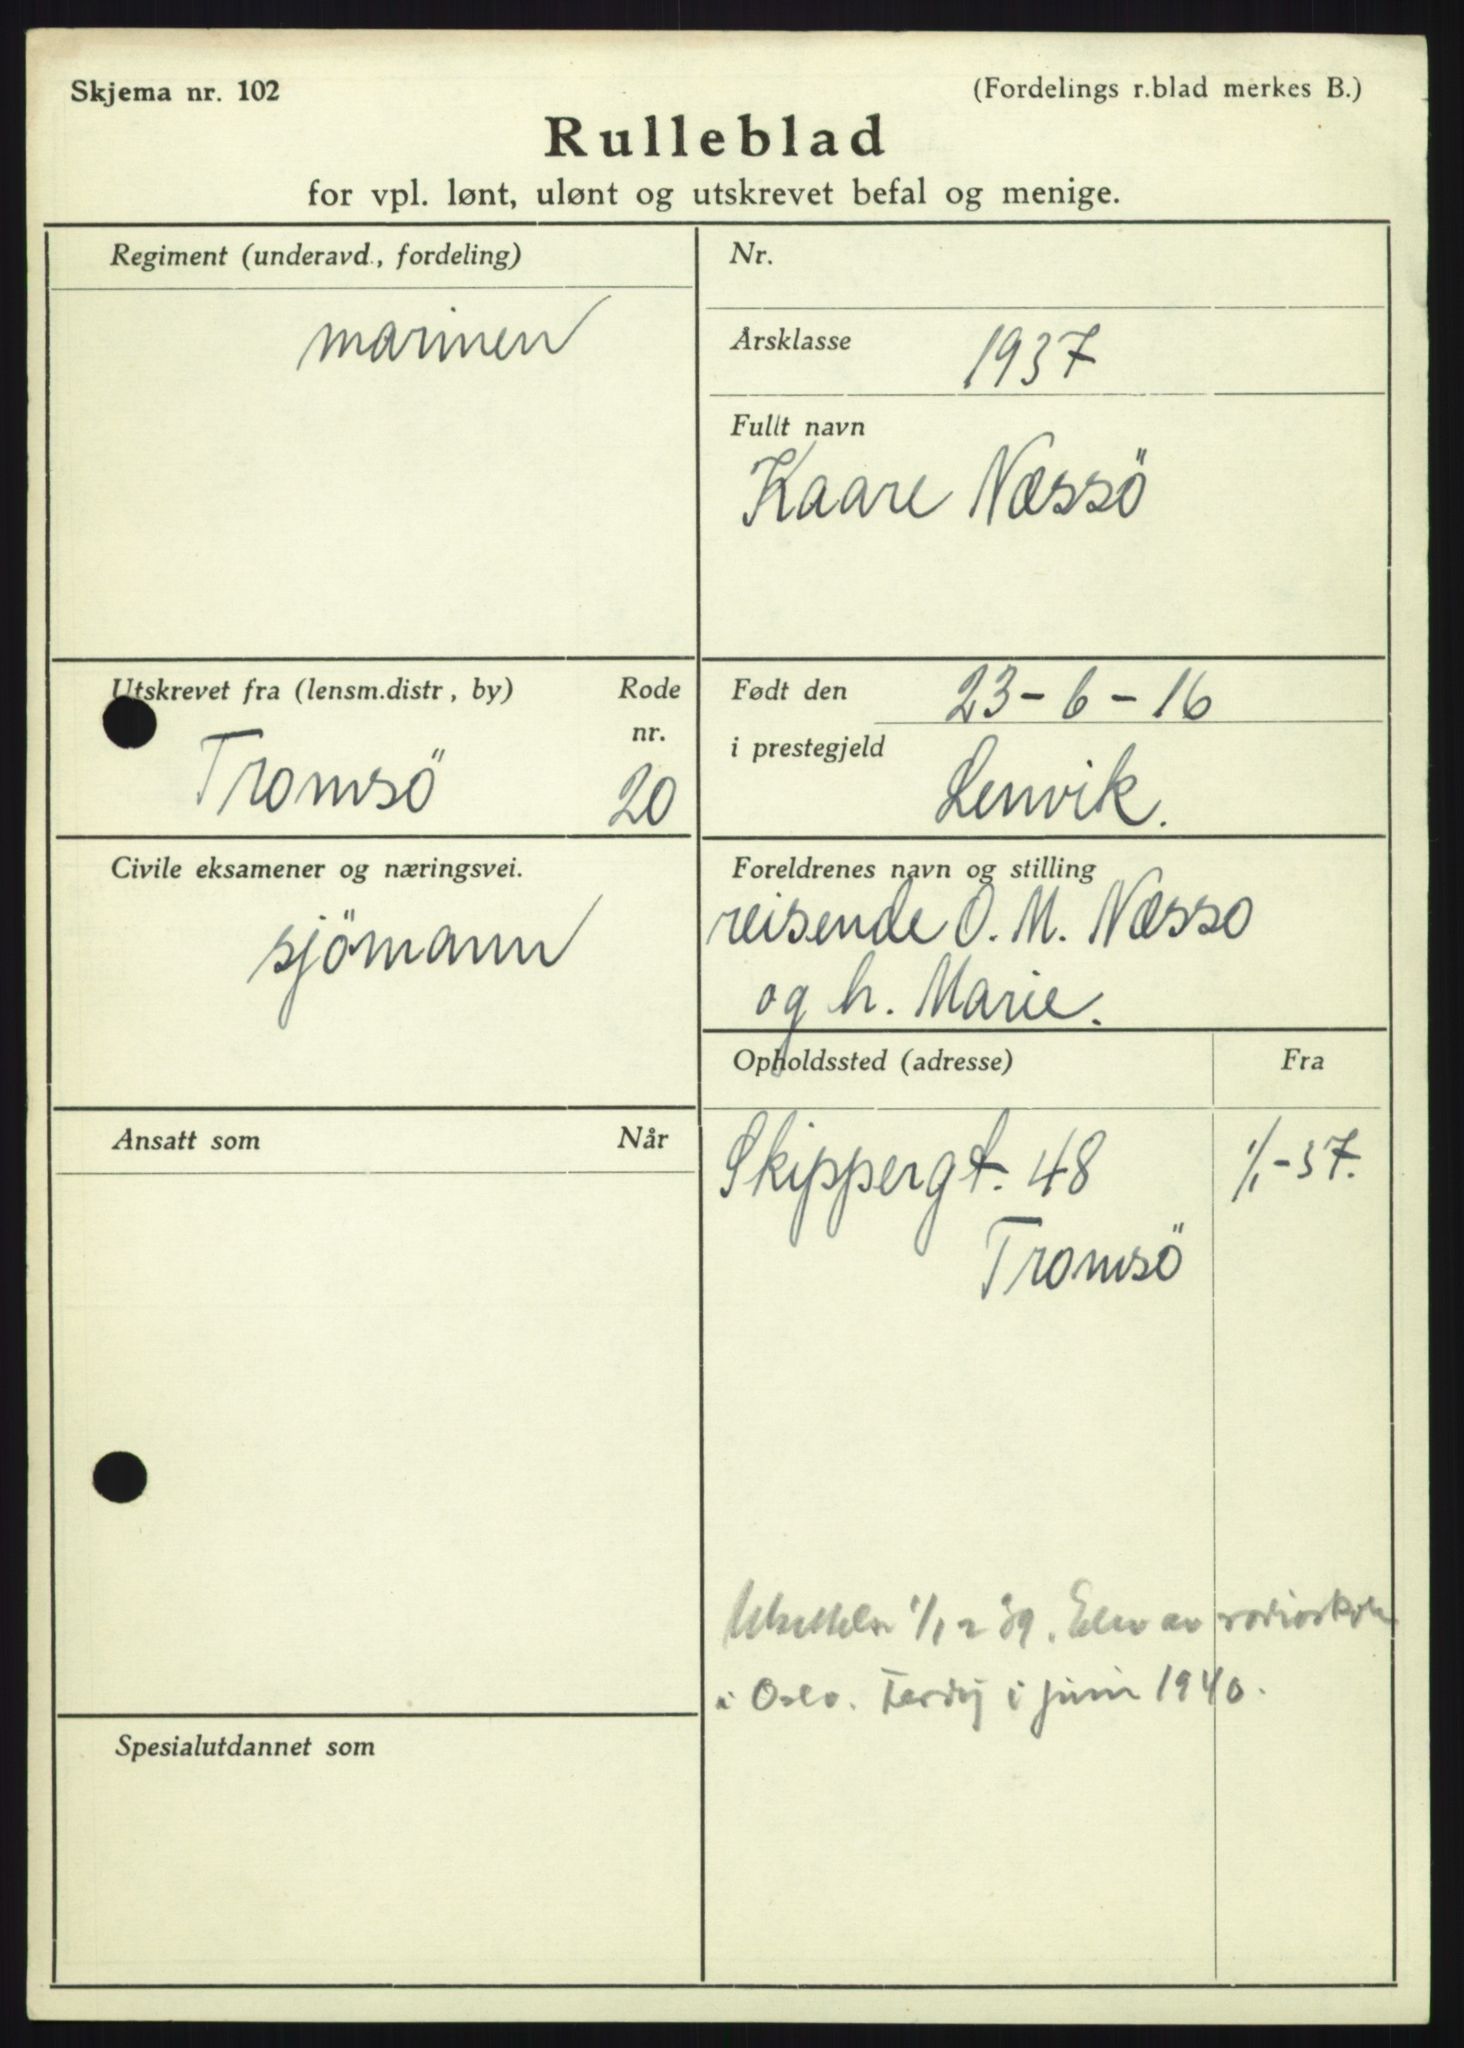 Skjema nr. 102
(Fordelings r.blad merkes B.)
Rulleblad
for vpl. lønt, ulønt og utskrevet befal og menige.
Regiment (underavd., fordeling)
marinen
Nr.
Årsklasse 1937
Fullt navn
Kaare Næssö
Utskrevet fra (lensm.distr, by)
Tromsö
Rode
nr.
20
Født den 23-6-16
i prestegjeld
Lenvik.
Civile eksamener og næringsvei.
sjömann
Foreldrenes navn og stilling
reisende O. M. Næsso
og h. Marie.
Opholdssted (adresse)
Fra
Skippergt. 48 1/1-37.
Tromsö
Ansatt som
Når
Utsettelse 1/12 39. Elev av radioskole
i Oslo. Ferdig i juni 1940.
Spesialutdannet som